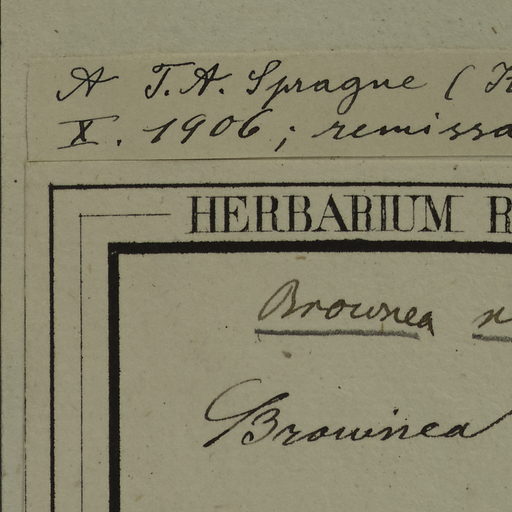 A T. A. Sprague (K
X. 1906; remissa
HERBARIUM R
Brownea n
Brownea